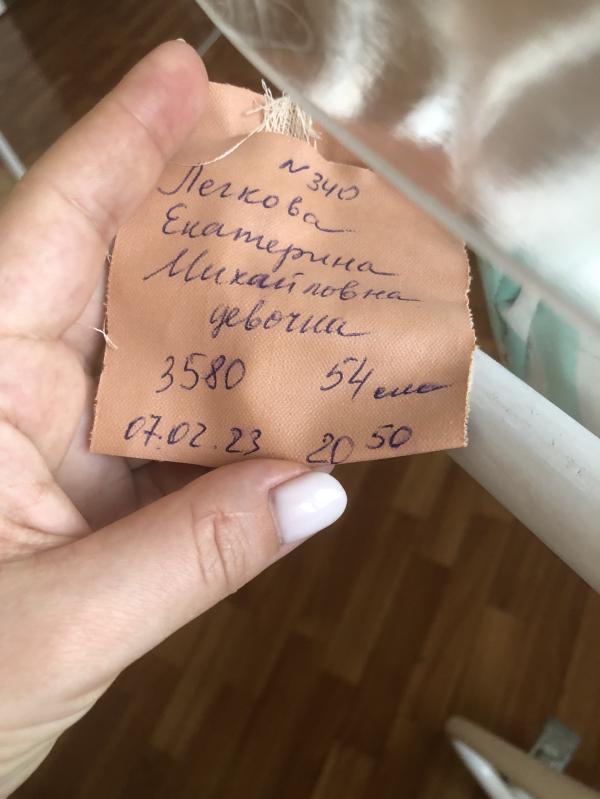 N 340
Легкова
Екатерина
Михайловна
девочка
3580 54 см
07.02.23 20 50